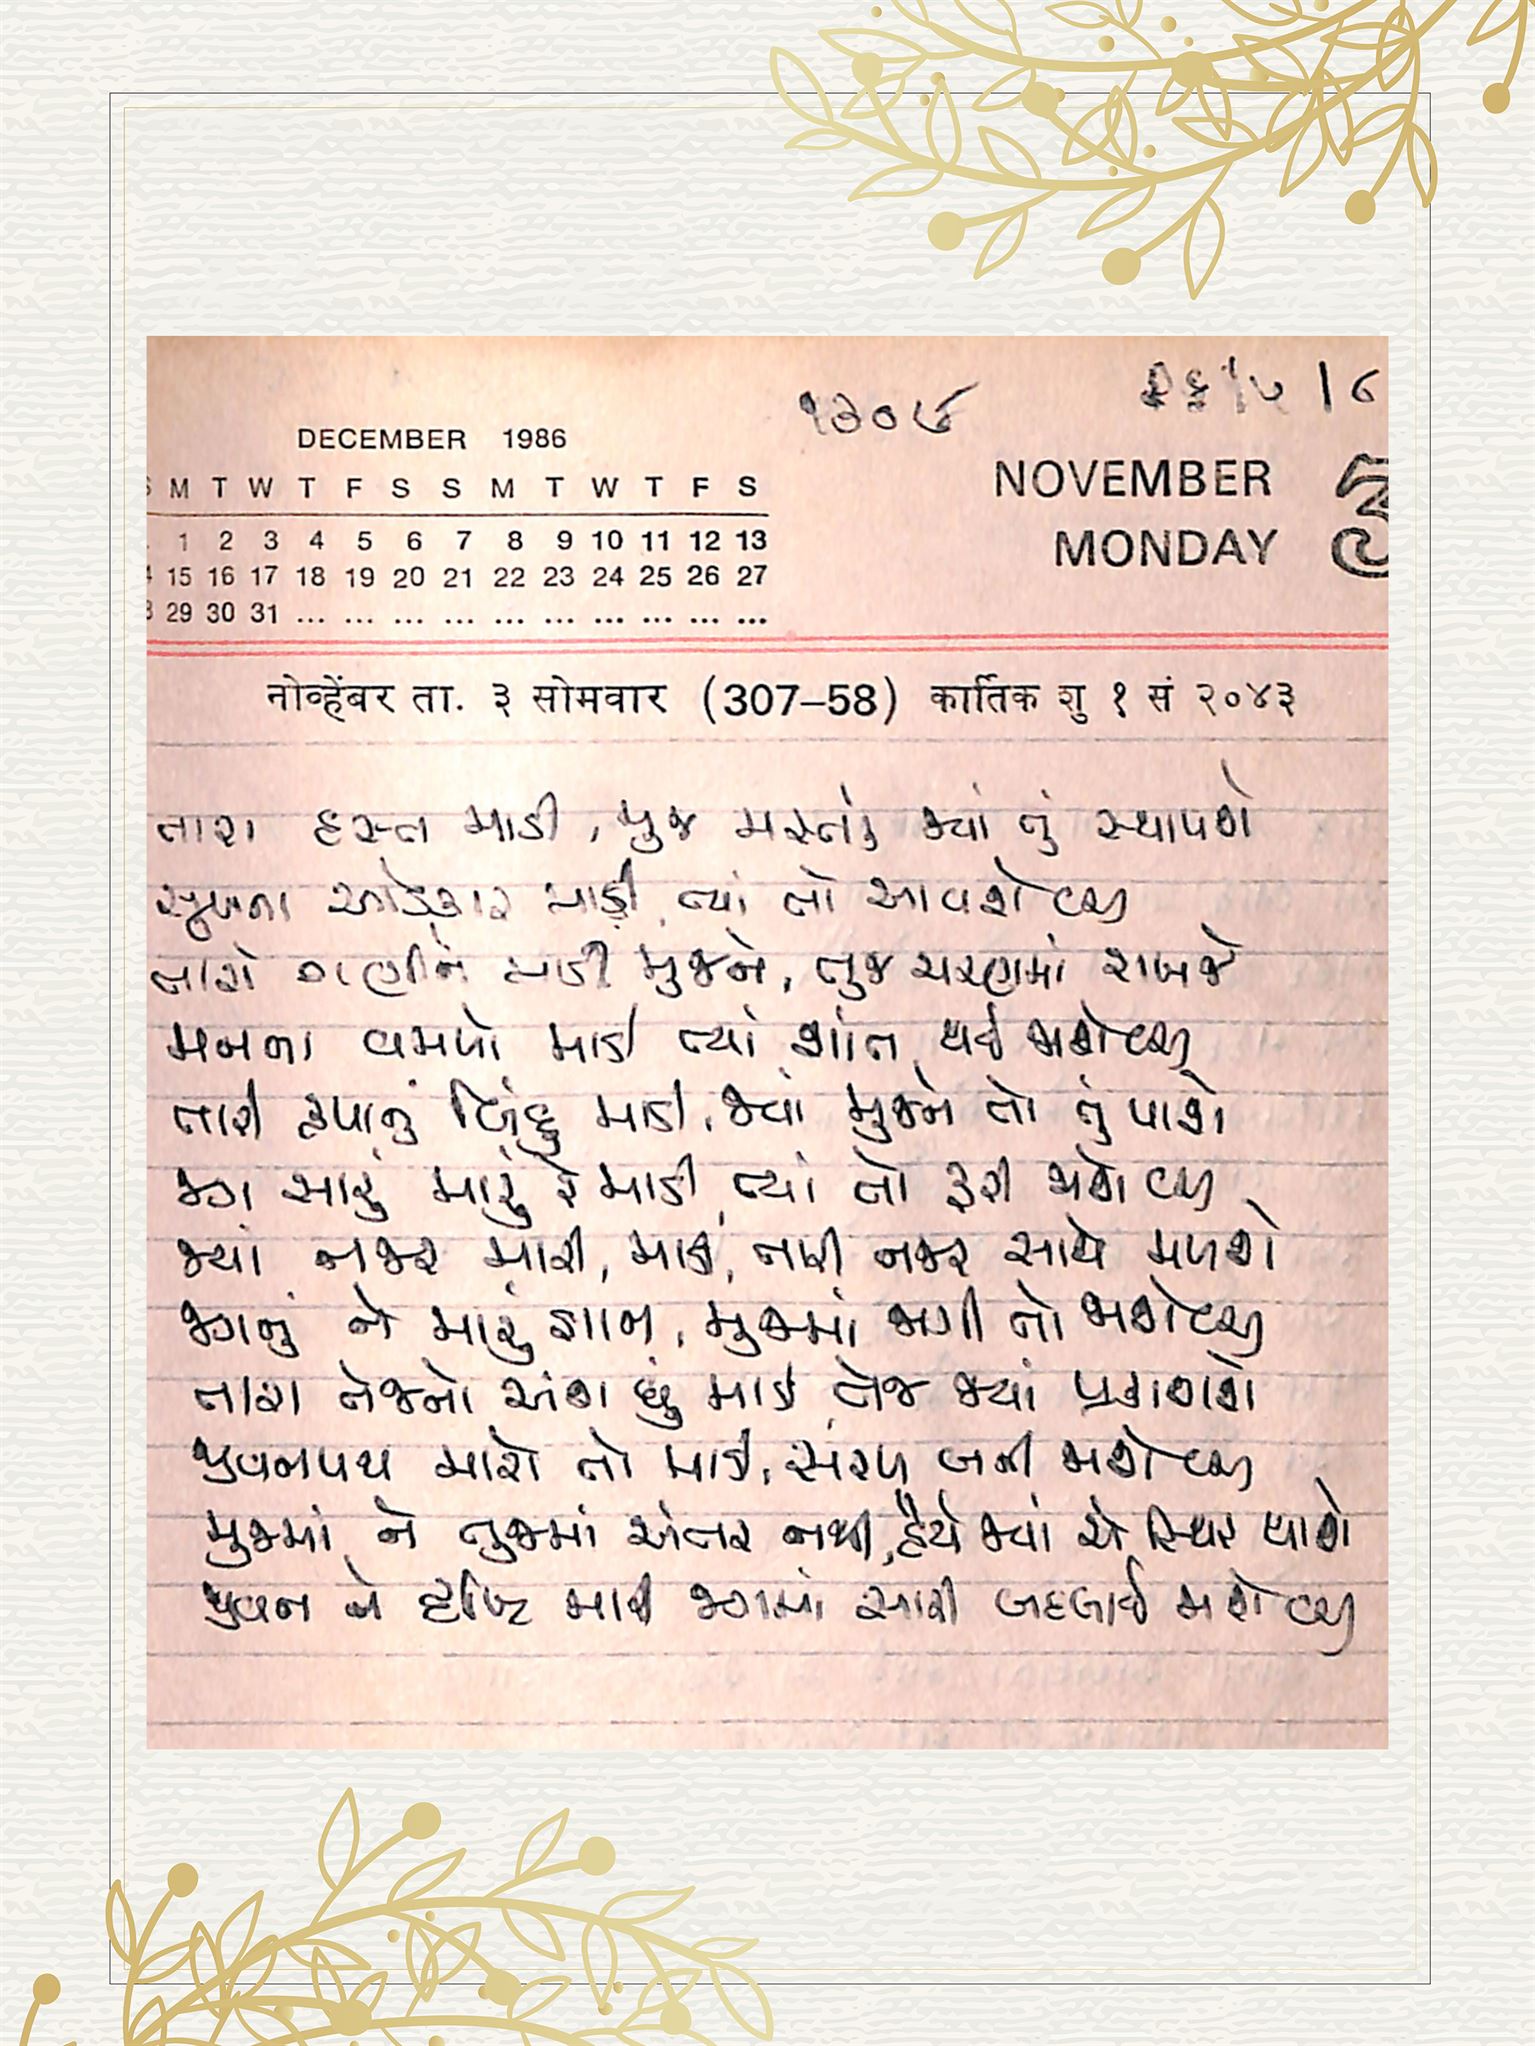 ૧૩૦૬
DECEMBER 1986
S M T W T F S S M T W T F S
1 2 3 4 5 6 7 8 9 10 11 12 13
15 16 17 18 19 20 21 22 23 24 25 26 27
29 30 31 ... ... ... ... ... ... ... ... ... ... ...
NOVEMBER 3
MONDAY
नोव्हेंबर ता. ३ सोमवार (307–58) कार्तिक शु १ सं २०४३
તારા હસ્ત માડી, મુજ મસ્તકે જ્યાં તું સ્થાપશે
સુખના ઓડકાર માડી, ત્યાં તો આવશે
તારો ગણીને માડી મુજને, તુજ ચરણમાં રાખજે
મનના વમળો માડી ત્યાં શાંત થઈ જાશે
તારી કૃપાનું બિંદુ માડી, જ્યાં મુજને તો તું પાશે
જગ સારું મારું રે માડી, ત્યાં તો ફરી જાશે
જ્યાં નજર મારી, માડી, તારી નજર સાથે મળશે
જગનું ને મારું જ્ઞાન, મુજમાં જાગી તો જાશે
તારા તેજનો અંશ છું માડી, તેજ જ્યાં પ્રગટાશે
જીવનપથ મારો તો માડી, સરળ બની જાશે
મુજમાં ને તુજમાં અંતર નથી, હૈયે જ્યાં એ સ્થિર થાશે
જીવન ને દૃષ્ટિ મારી જગમાં સારી બદલાઈ જાશે